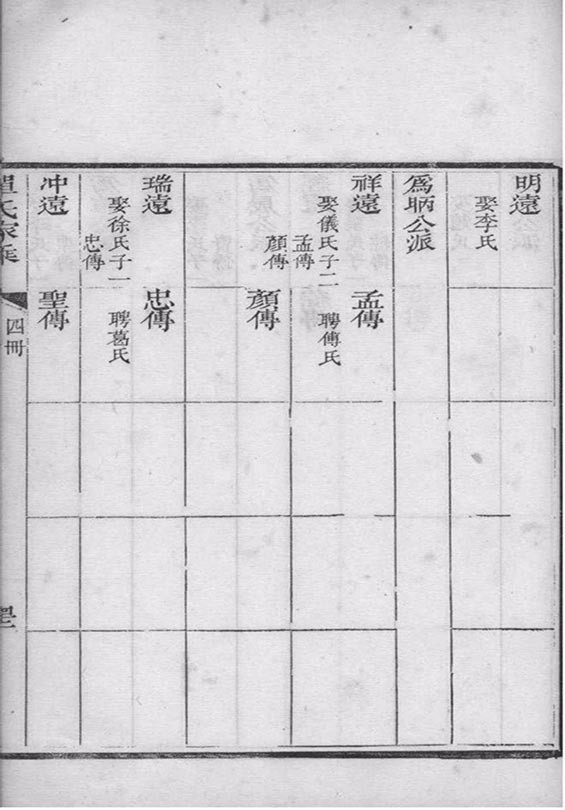 明遠
娶李氏
爲昞公派
祥遠
娶儀氏子二
孟傳
顏傳
孟傳
聘傅氏
顏傳
瑞遠
娶徐氏子一
忠傳
忠傳
聘葛氏
冲遠
聖傳
氏家乘
四冊